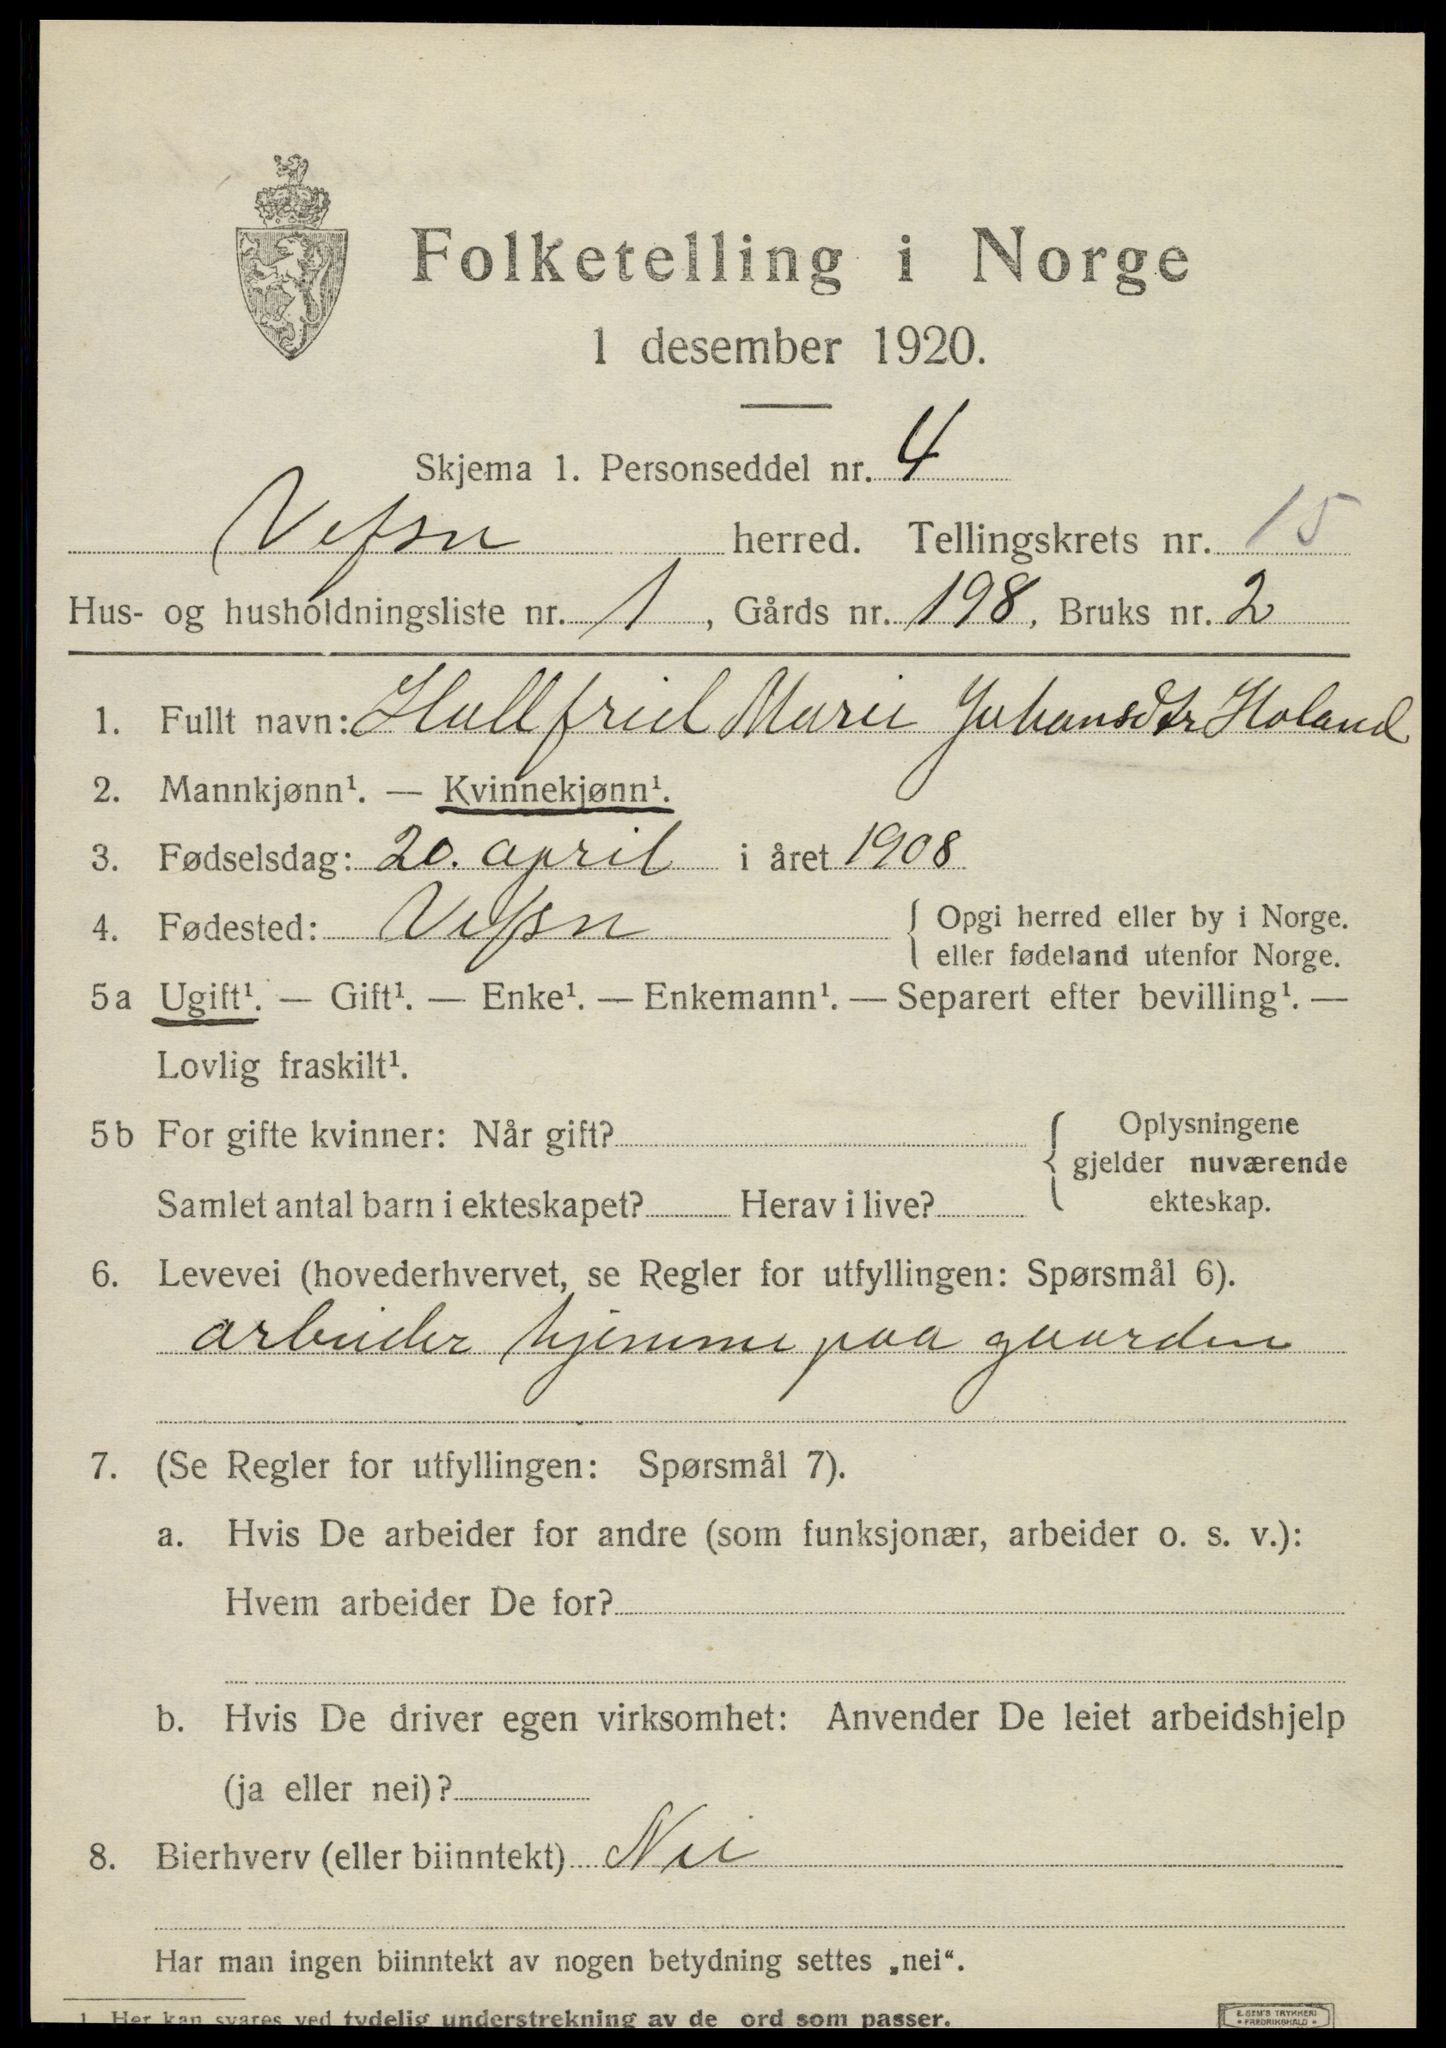 Folketelling i Norge
1 desember 1920.
Skjema 1. Personseddel nr. 4
Vefsn herred. Tellingskrets nr. 15
Hus- og husholdningsliste nr. 1, Gårds nr. 198, Bruks nr. 2
1. Fullt navn: Hallfrid Marie Johansdtr Holand
2. Mannkjønn¹. — Kvinnekjønn¹.
3. Fødselsdag: 20. april i året 1908
4. Fødested: Vefsn { Opgi herred eller by i Norge.
eller fødeland utenfor Norge.
5a Ugift¹. — Gift¹. — Enke¹. — Enkemann¹. — Separert efter bevilling¹. —
Lovlig fraskilt¹.
5b For gifte kvinner: Når gift? { Oplysningene
gjelder nuværende
Samlet antal barn i ekteskapet? Herav i live? ekteskap.
6. Levevei (hovederhvervet, se Regler for utfyllingen: Spørsmål 6).
arbeider hjemme paa gaarden
7. (Se Regler for utfyllingen: Spørsmål 7).
a. Hvis De arbeider for andre (som funksjonær, arbeider o. s. v.):
Hvem arbeider De for?
b. Hvis De driver egen virksomhet: Anvender De leiet arbeidshjelp
(ja eller nei)?
8. Bierhverv (eller biinntekt) Nei
Har man ingen biinntekt av nogen betydning settes „nei“.
1. Her kan svares ved tydelig understrekning av de ord som passer.
E. SEM'S TRYKKERI
• FREDRIKSHALD •